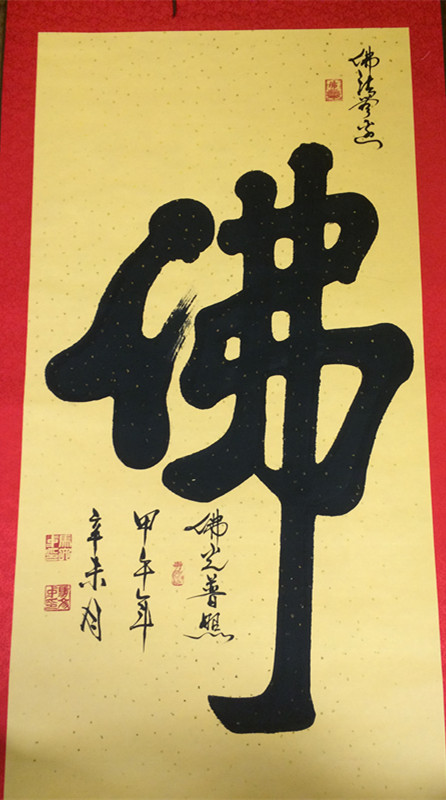 佛法無边
佛
佛光普照
甲午年
辛未月